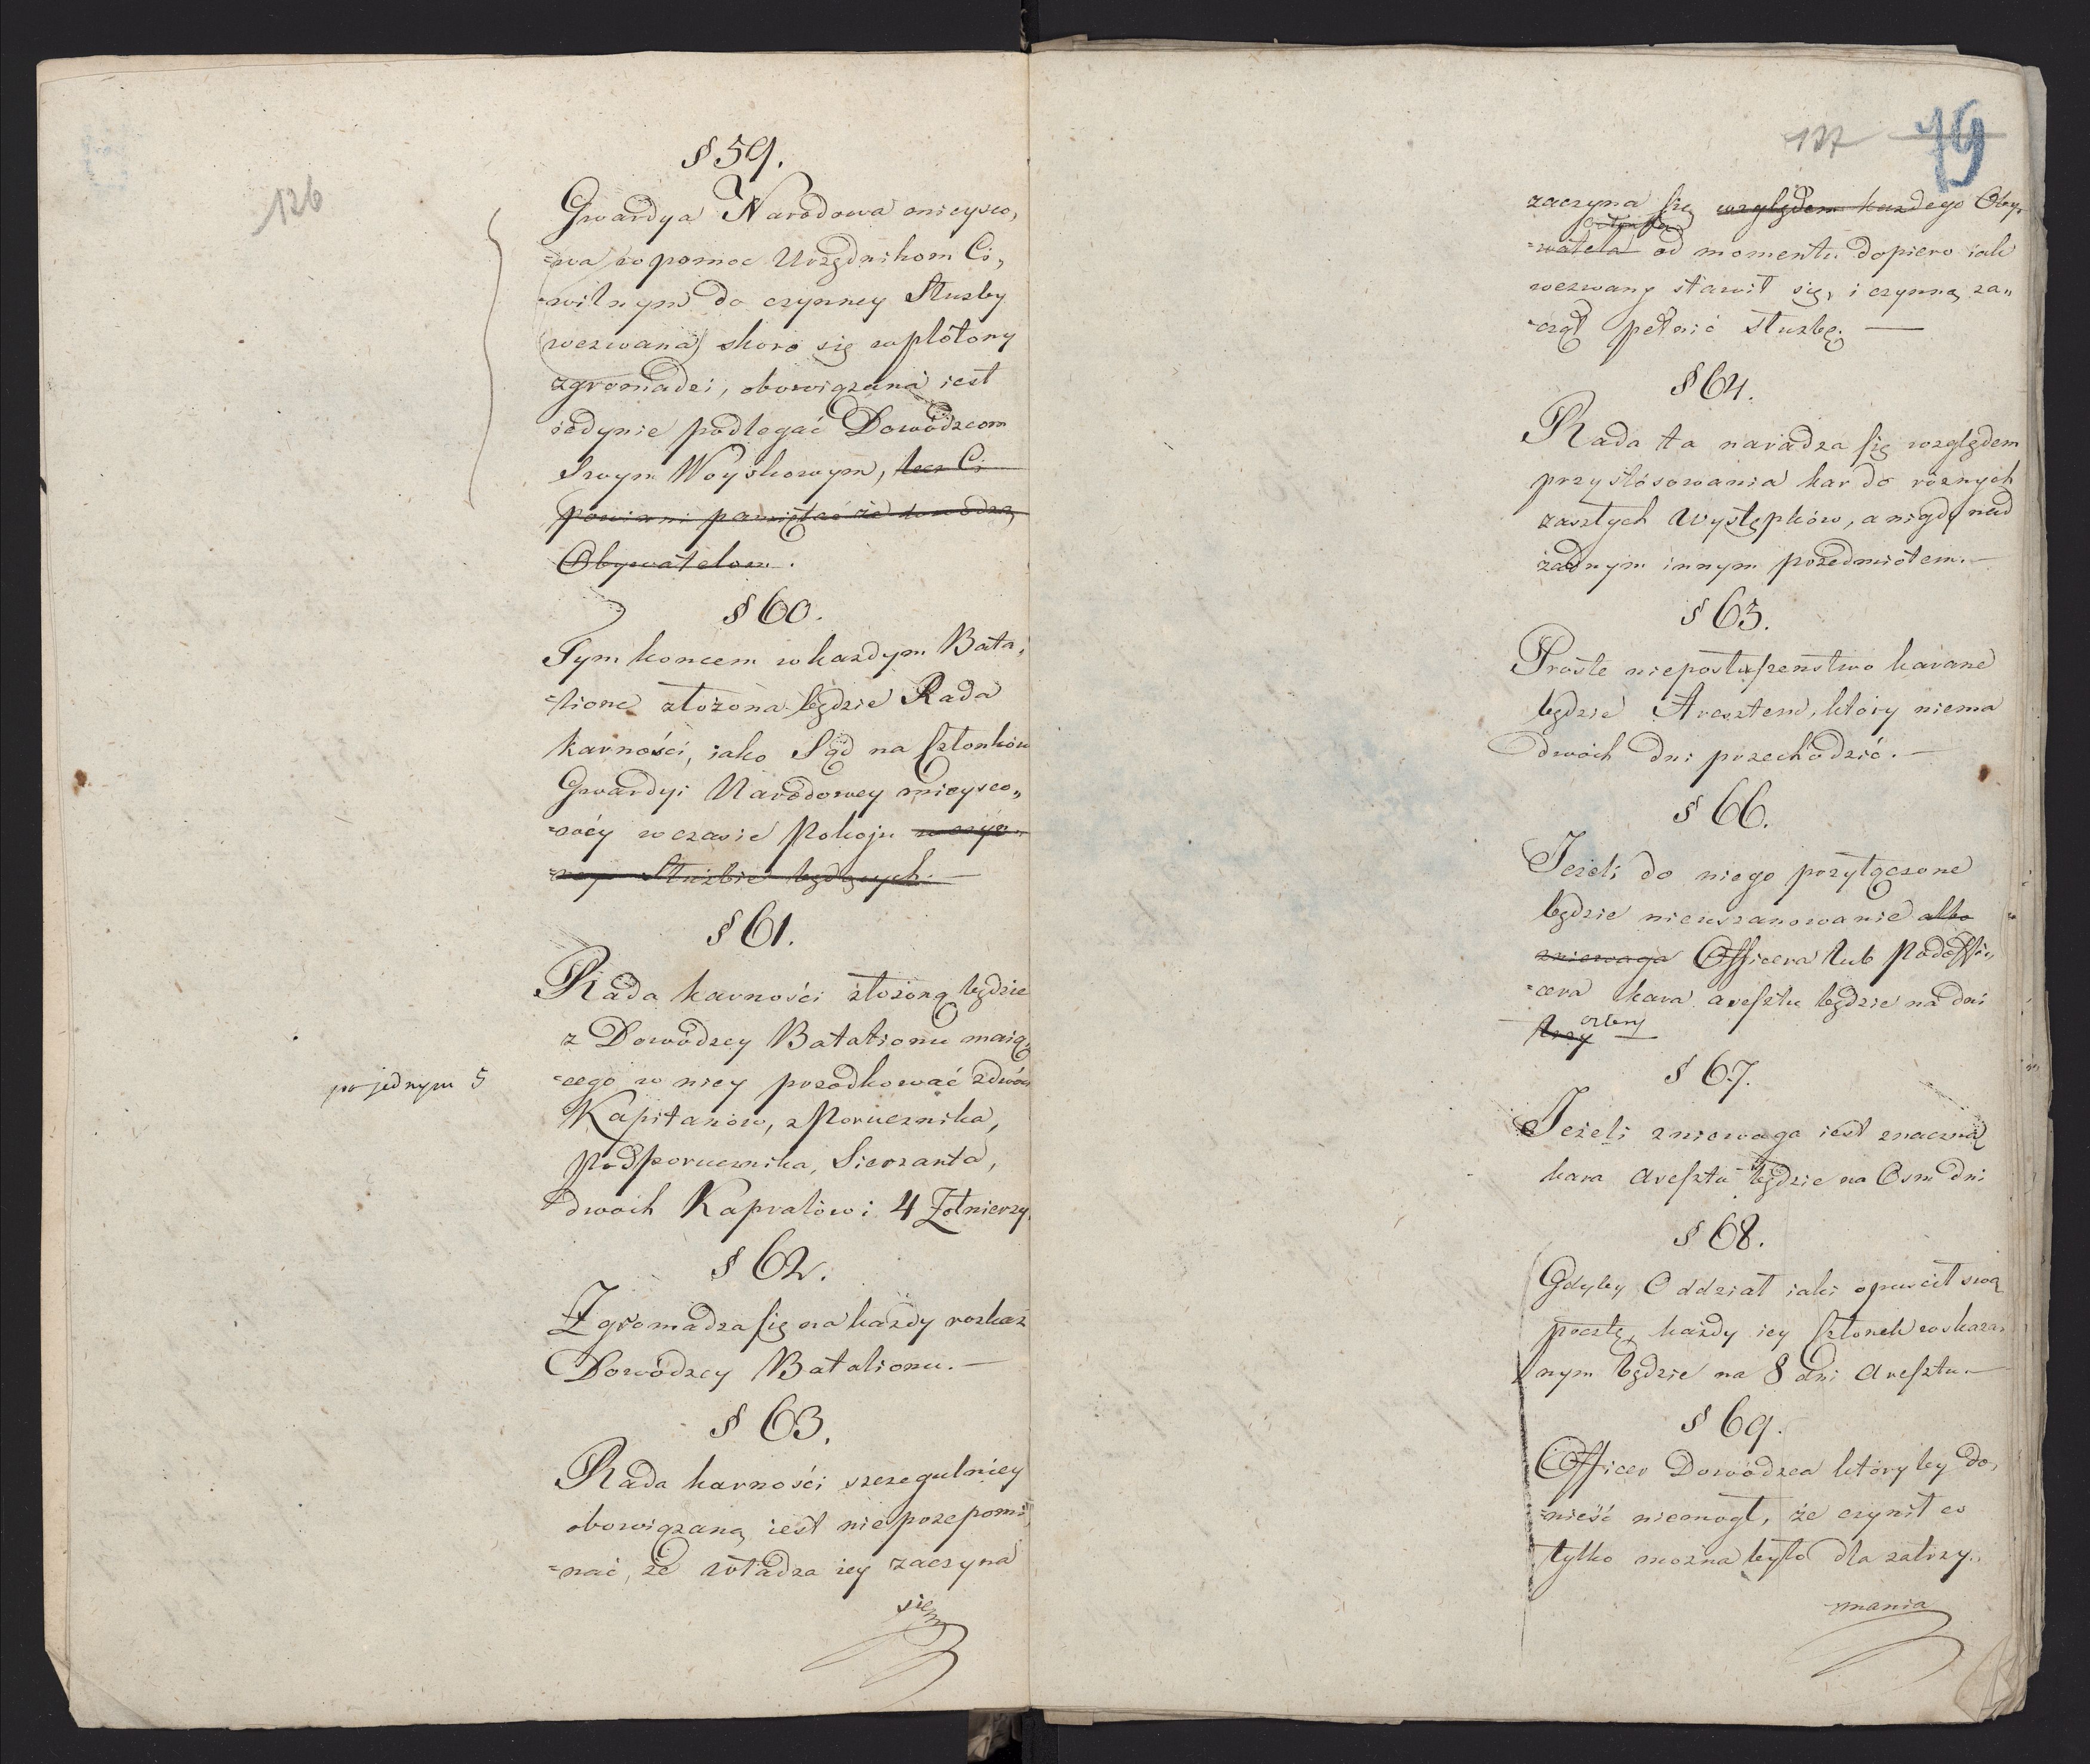 126
§ 59.
Gwardya Narodowa mieysco„
=wa w pomoc Urzędnikom Ci„
=wilnym do czynney Służby
(wezwana) skoro się w plótony
zgromadzi, obowiązana iest
iedynie podlegać Dowódzcom
Swym Woyskowym, lecz Ci
powinni pamiętać że dowodzą
Obywatelom.
§ 60.
Tym koncem w każdym Bata„
=lione złożona będzie Rada
karności, iako Sąd na Członków
Gwardyi Narodowey mieysco„
=wéy w czasie Pokoju w czyn„
=ney Służbie będących.—
§ 61.
Rada karności złożoną będzie
z Dowódzcy Batalionu maią„
=cego w niey przodkować z dwóch
po jednym 5
Kapitanów, z Porucznika,
Podporucznika, Sierzanta,
dwóch Kapralów i 4 Żołnierzy.
§ 62.
Zgromadza się na każdy rozkaz
Dowódzcy Batalionu.—
§ 63.
Rada karności szczegulniey
obowiązaną iest nie przepomi„
=nać, że władza iey zaczyna
się
127 79
zaczyna się względem każdego Oby„
=watela od momentu dopiero iak
wezwany stawił się, i czynną za„
=czął pełnić służbę.—
§ 64.
Rada ta naradza się względem
przystósowania kar do róznych
zaszłych Występków, a nigdy nad
żadnym innym przedmiotem.—
§ 65.
Proste nieposłuszenstwo karane
będzie Aresztem, który niema
dwóch dni przechodzić.—
§ 66.
Jeżeli do niego przyłączone
będzie nieuszanowanie albo
zniewaga Officera lub Podoffi„
=cera kara aresztu będzie na dni
trzy cztery
§ 67.
Jeżeli zniewaga iest znaczną
kara aresztu będzie na Osm dni
§ 68.
Gdyby Oddział iaki opuscił swą
pocztę, każdy iey Członek wskaza„
nym będzie na 8 dni Aresztu.—
§ 69.
Officer Dowódzca któryby do„
=nieść niemogł, że czynił co
tylko można było dla zatrzy„
mania